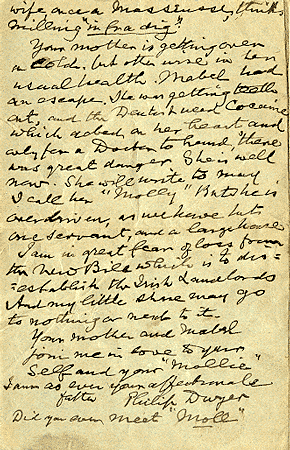 wife once a Masseusse, thinks
milling "in fra dig."
Your mother is getting over
a Cold, but otherwise in her
usual health. Mabel had
an escape. She was getting teeth
out, and the Dentist used Cocaine
which acted on her heart and
only for a Doctor to hand, there
was great danger. She is well
now. She will write to may
I call her "Molly" But she is
overdriven, as we have but
one servant, and a large house
I am in great fear of loss from
the New Bill which is to dis=
=establish the Irish Landlords
And my little share may go
to nothing or next to it.
Your Mother and Mabel
Join me in love to your
Self and your "Mollie"
I am as ever your affectionate
father Philip Dwyer
Did you ever meet "Moll"